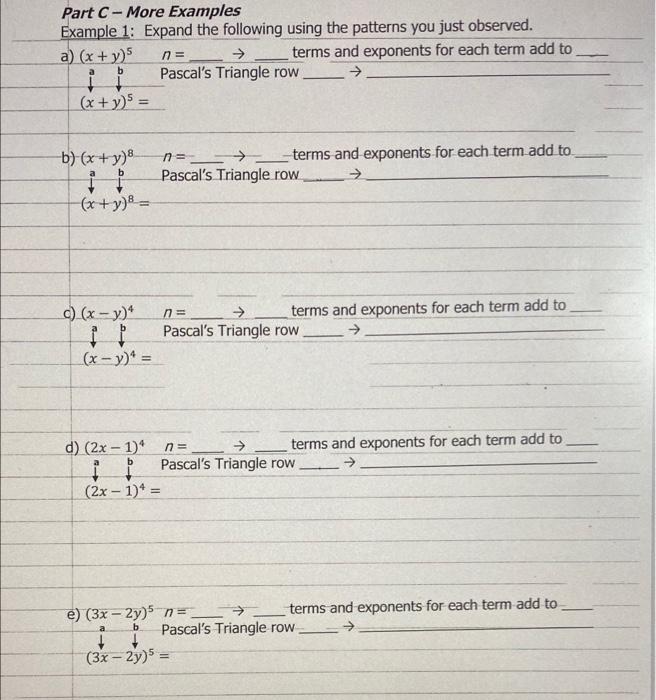 Part C – More Examples
Example 1: Expand the following using the patterns you just observed.
a) (x + y)⁵ n = ___ → ___ terms and exponents for each term add to ___
a b Pascal's Triangle row ___ → ___
↓ ↓
(x + y)⁵ =
b) (x + y)⁸ n = ___ → ___ terms and exponents for each term add to ___
a b Pascal's Triangle row ___ → ___
↓ ↓
(x + y)⁸ =
c) (x – y)⁴ n = ___ → ___ terms and exponents for each term add to ___
a b Pascal's Triangle row ___ → ___
↓ ↓
(x – y)⁴ =
d) (2x – 1)⁴ n = ___ → ___ terms and exponents for each term add to ___
a b Pascal's Triangle row ___ → ___
↓ ↓
(2x – 1)⁴ =
e) (3x – 2y)⁵ n = ___ → ___ terms and exponents for each term add to ___
a b Pascal's Triangle row ___ → ___
↓ ↓
(3x – 2y)⁵ =